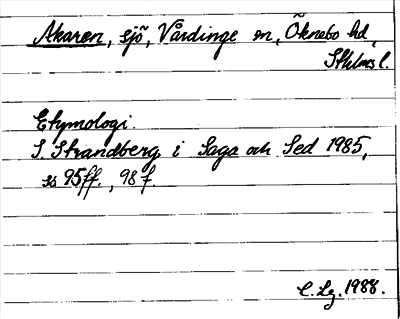 Akaren, sjö, Vårdinge sn, Öknebo hd,
Sthlms l.
Etymologi
S. Strandberg i Saga och Sed 1985,
ss 95ff., 98 f.
C. Lg. 1988.